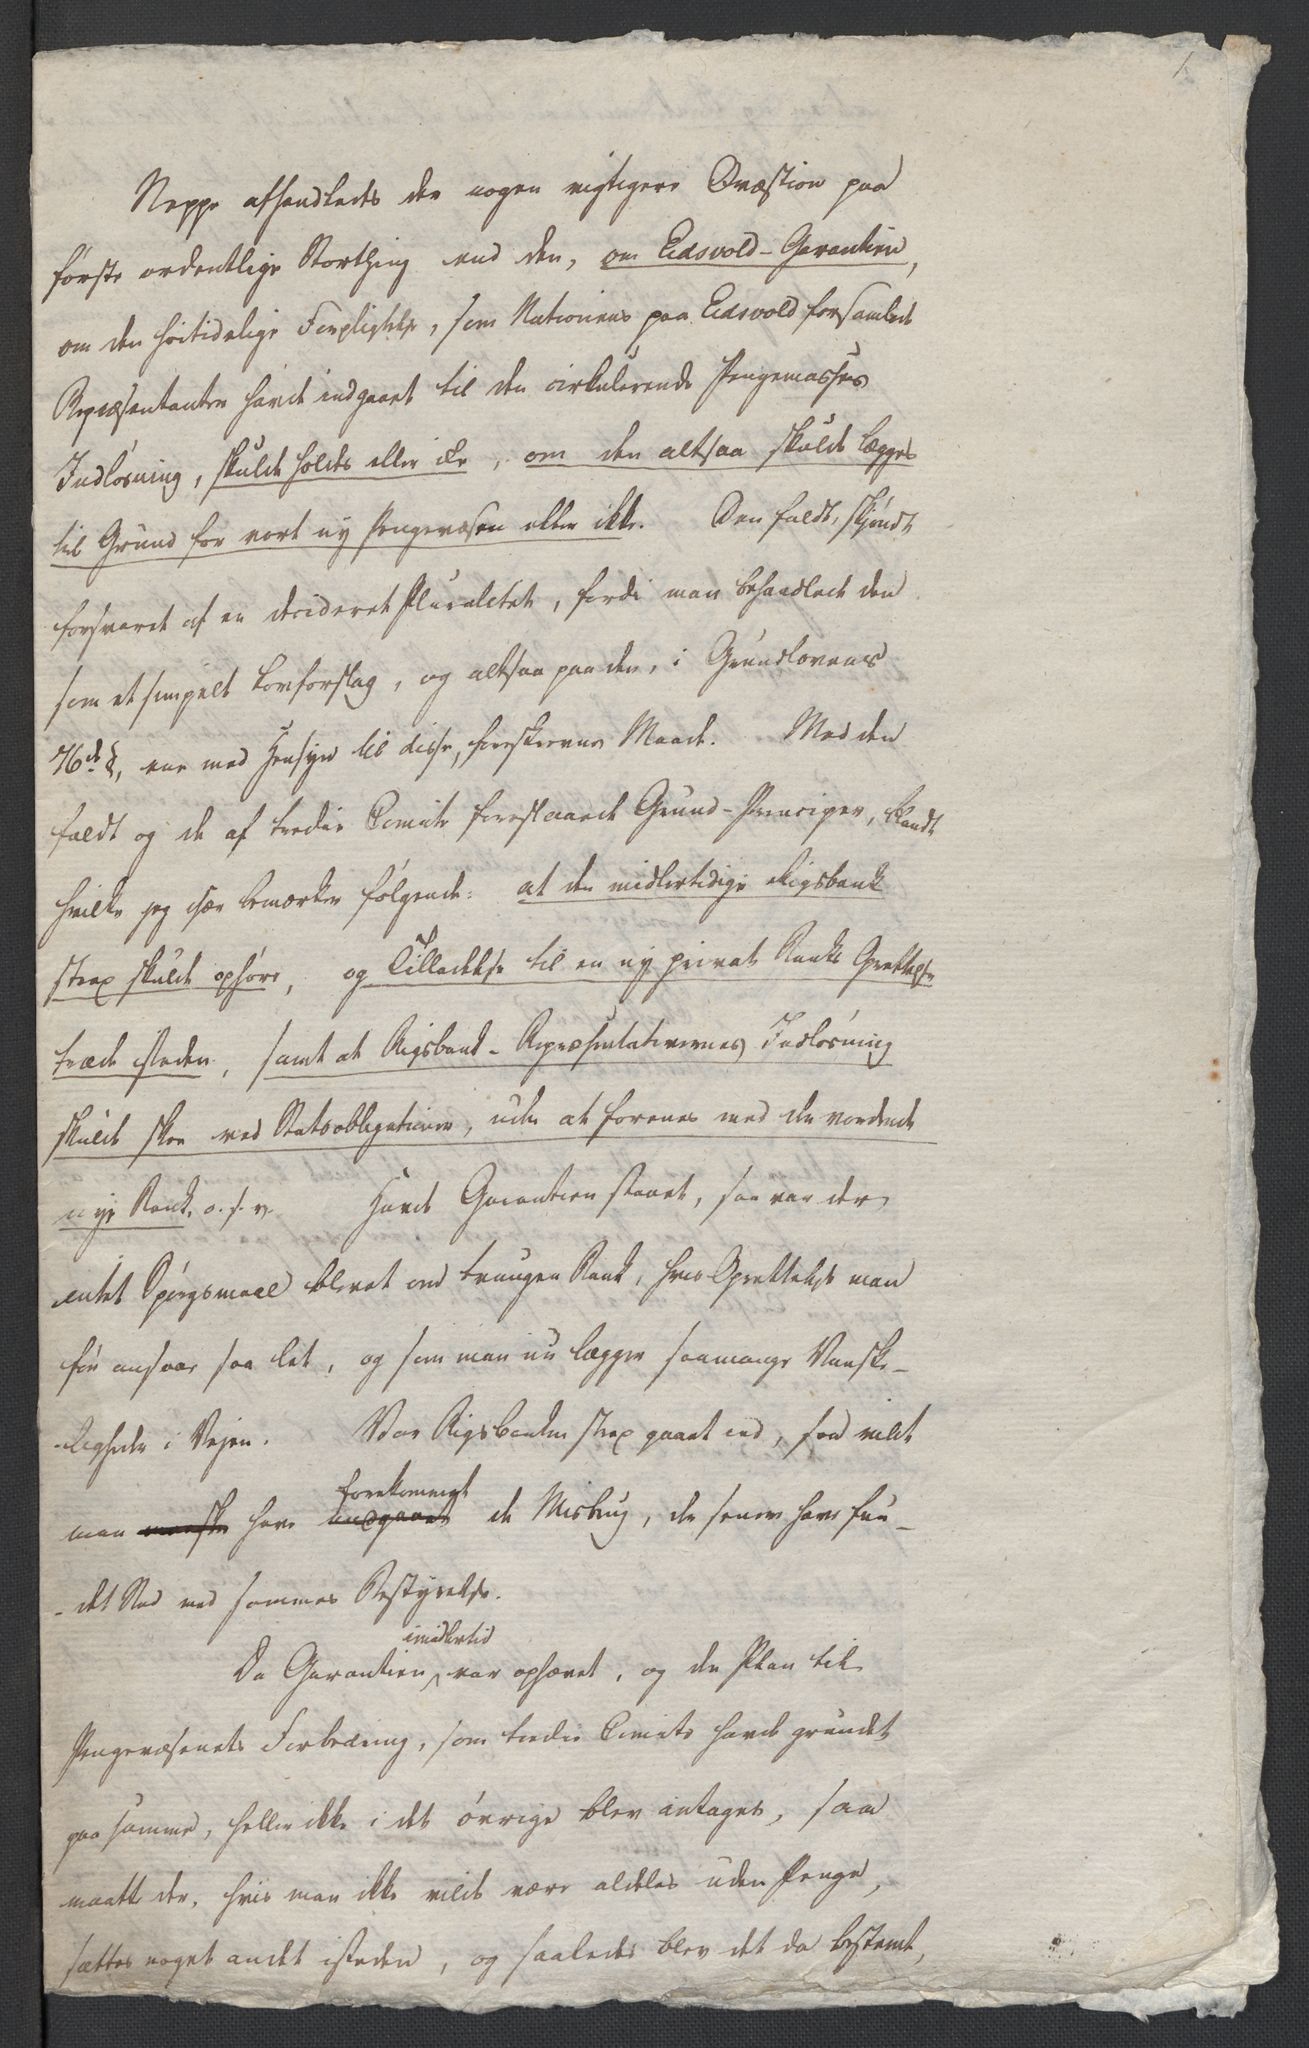 1
Neppe afhandledes der nogen vigtigere Qvæstion paa
første ordentlige Storthing end den, om Eidsvold-Garantien,
om den høitidelige Forpligtelse, som Nationens paa Eidsvold forsamlede
Repræsentanter havde indgaaet til den cirkulerende Pengemasses
Indløsning, skulde holdes eller ei, om den altsaa skulde lægges
til Grund for vort ny Pengevæsen eller ikke. Den faldt, skjøndt
forsvaret af en decideret Pluralitet, fordi man behandlede den
som et simpelt Lovforslag, og altsaa paa den, i Grundlovens
76de §, ene med Hensyn til disse, foreskrevne Maade. Med den
faldt og de af tredie Comite foreslaaede Grund-Principer, blandt
hvilke jeg især bemærker følgende: at den midlertidige Rigsbank
strax skulde ophøre, og Tilladelse til en ny privat Banks Oprettelse
træde isteden, samt at Rigsbank-Repræsentativernes Indløsning
skulde skee ved Statsobligationer, uden at forenes med den vordende
nye Bank, o. s. v. Havde Garantien staaet, saa var der
intet Spørgsmaal blevet om tvungen Bank, hvis Oprettelse man
før ansaae saa let, og som man nu lægger saamange Vanske-
-ligheder i Vejen. Var Rigsbanken strax gaaet ind, saa vilde
man maaske have undgaaet forekommet de Misbrug, der senere have fun-
-det Sted ved sammes Bestyrelse.
Da Garantien imidlertid var ophævet, og den Plan til
Pengevæsenets Forbedring, som tredie Comite havde grundet
paa samme, heller ikke i det øvrige blev antaget, saa
maatte der, hvis man ikke vilde være aldeles uden Penge,
sættes noget andet isteden, og saaledes blev det da bestemt,